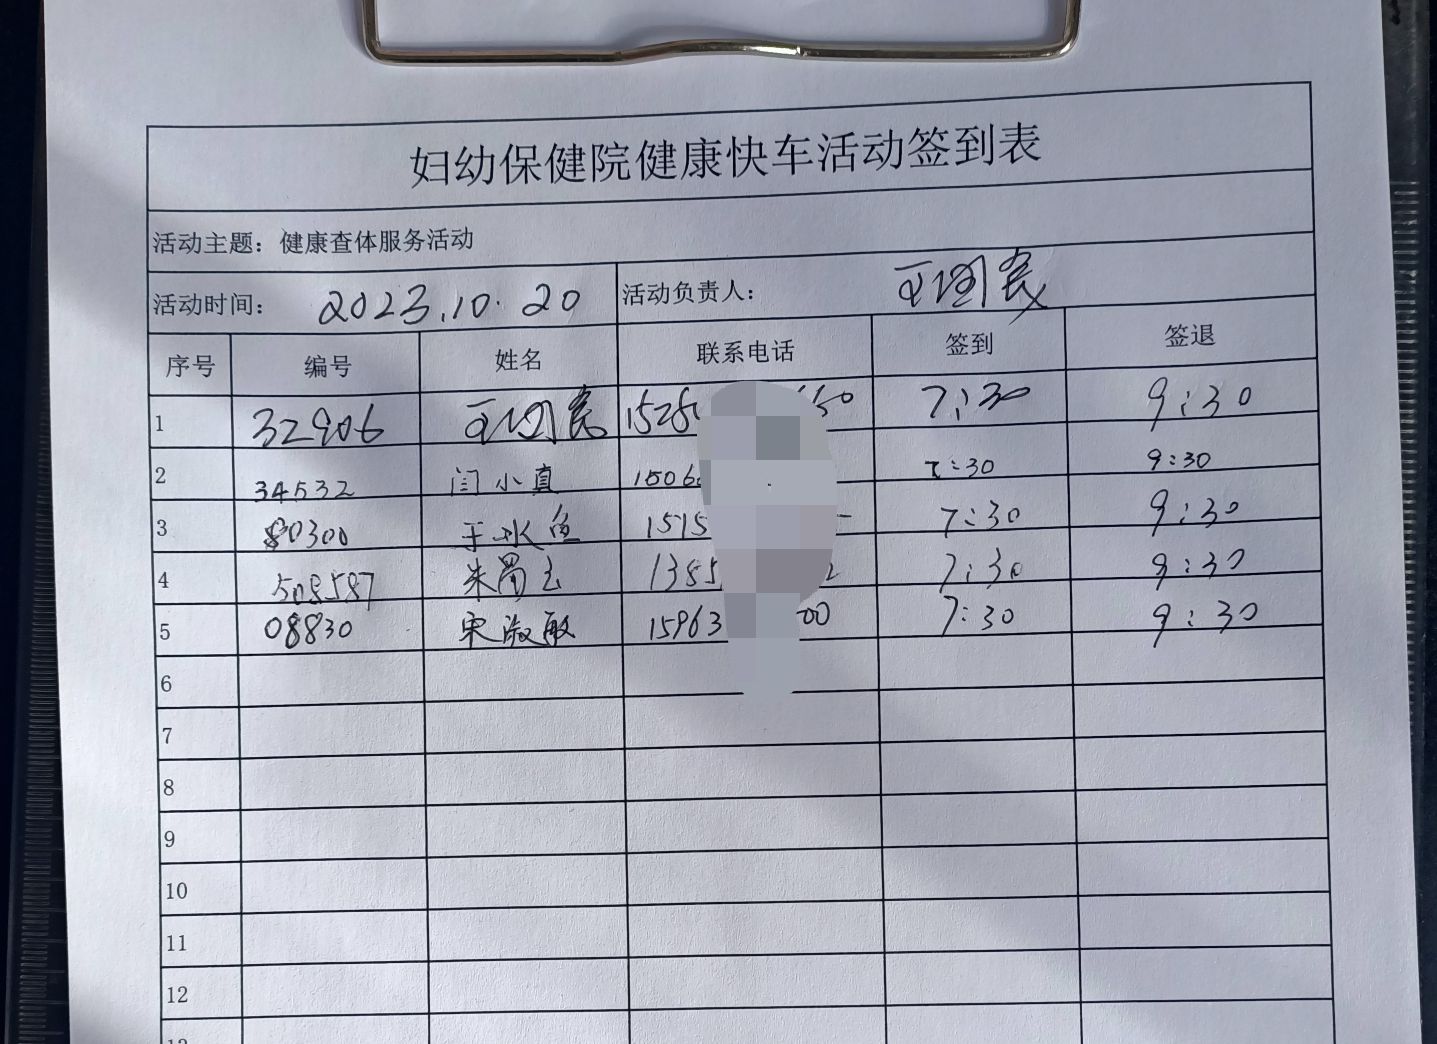 妇幼保健院健康快车活动签到表
活动主题：健康查体服务活动
活动时间： 2023.10.20 活动负责人：
序号 编号 姓名 联系电话 签到 签退
1 32906 7:30 9:30
2 34532 闫小真 1506 7:30 9:30
3 80300 于水鱼 1515 7:30 9:30
4 508587 朱 7:30 9:30
5 08830 宋淑敏 15963 00 7:30 9:30
6
7
8
9
10
11
12